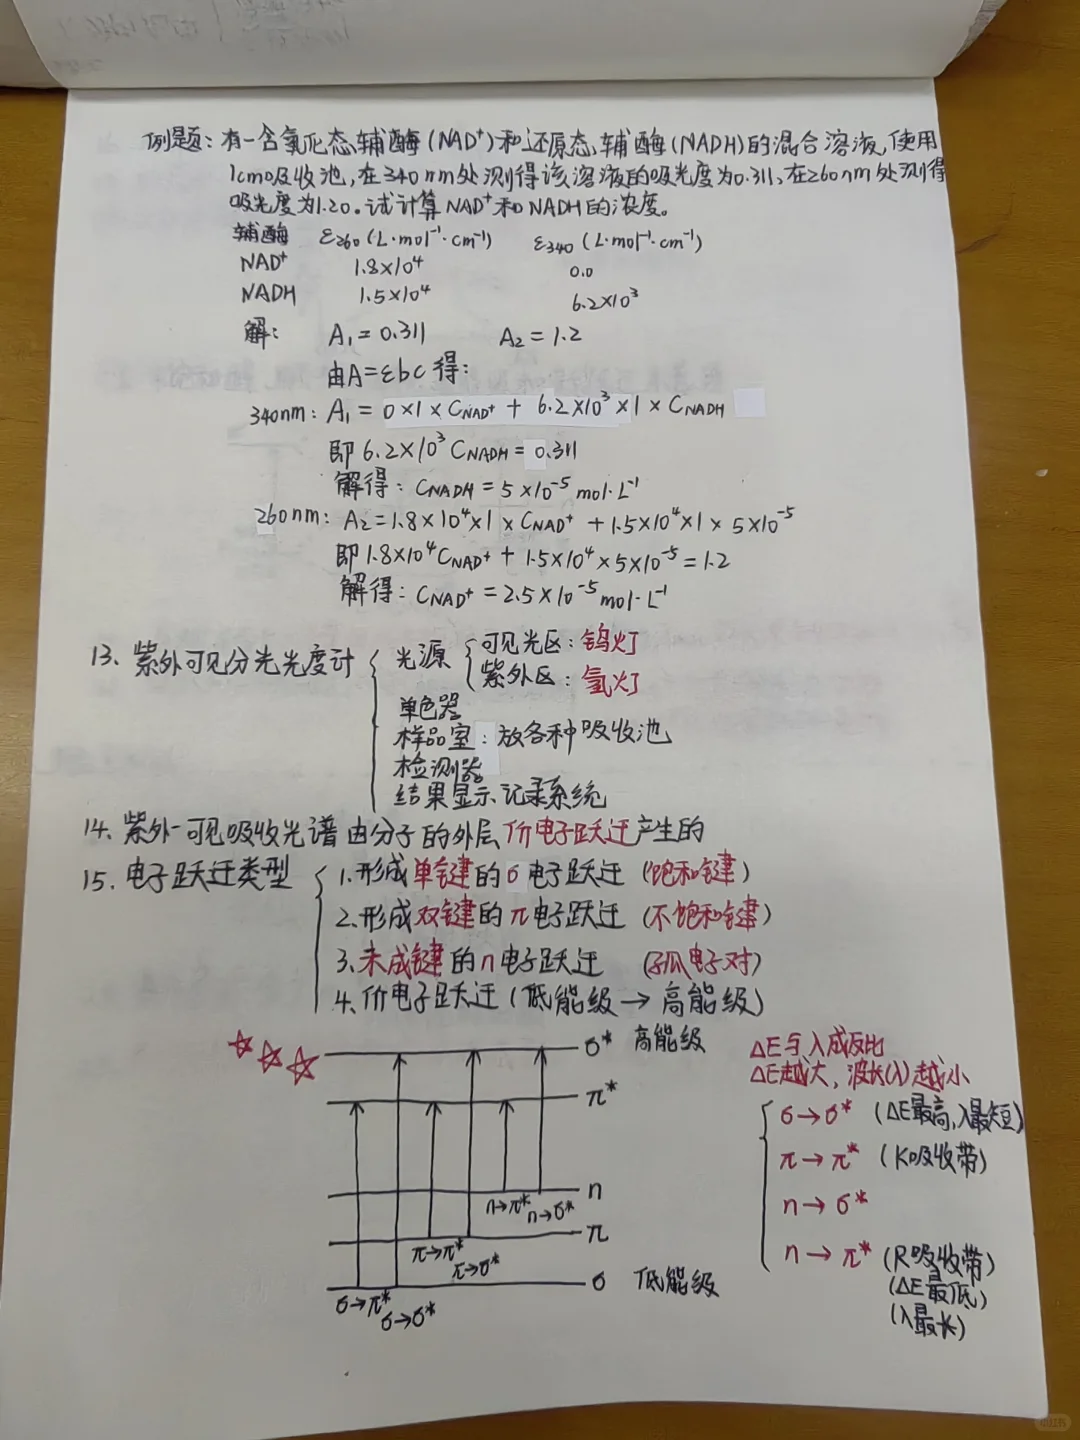 例题：有一含氧化态辅酶(NAD⁺)和还原态辅酶(NADH)的混合溶液,使用
1cm吸收池,在340nm处测得该溶液的吸光度为0.311,在260nm处测得
吸光度为1.20。试计算NAD⁺和NADH的浓度。
辅酶 ε260 (L·mol⁻¹·cm⁻¹) ε340 (L·mol⁻¹·cm⁻¹)
NAD⁺ 1.8×10⁴ 0.0
NADH 1.5×10⁴ 6.2×10³
解: A₁=0.311 A₂=1.2
由A=εbc得:
340nm: A₁ = 0×1×C_NAD⁺ + 6.2×10³×1×C_NADH
即 6.2×10³ C_NADH = 0.311
解得: C_NADH = 5×10⁻⁵ mol·L⁻¹
260nm: A₂=1.8×10⁴×1×C_NAD⁺ +1.5×10⁴×1×5×10⁻⁵
即1.8×10⁴C_NAD⁺ + 1.5×10⁴×5×10⁻⁵=1.2
解得: C_NAD⁺ = 2.5×10⁻⁵mol·L⁻¹
13、紫外可见分光光度计 光源 可见光区: 钨灯
紫外区: 氢灯
单色器
样品室: 放各种吸收池
检测器
结果显示记录系统
14、紫外-可见吸收光谱由分子的外层价电子跃迁产生的
15、电子跃迁类型 1.形成单键的σ电子跃迁 (饱和键)
2.形成双键的π电子跃迁 (不饱和键)
3.未成键的n电子跃迁 (孤电子对)
4.价电子跃迁(低能级→高能级)
σ* 高能级
π*
n
n→π*
n→σ*
π
π→π*
π→σ*
σ 低能级
σ→π*
σ→σ*
ΔE与λ成反比
ΔE越大,波长(λ)越小
σ→σ* (ΔE最高,λ最短)
π→π* (K吸收带)
n→σ*
n→π* (R吸收带)
(ΔE最低)
(λ最长)